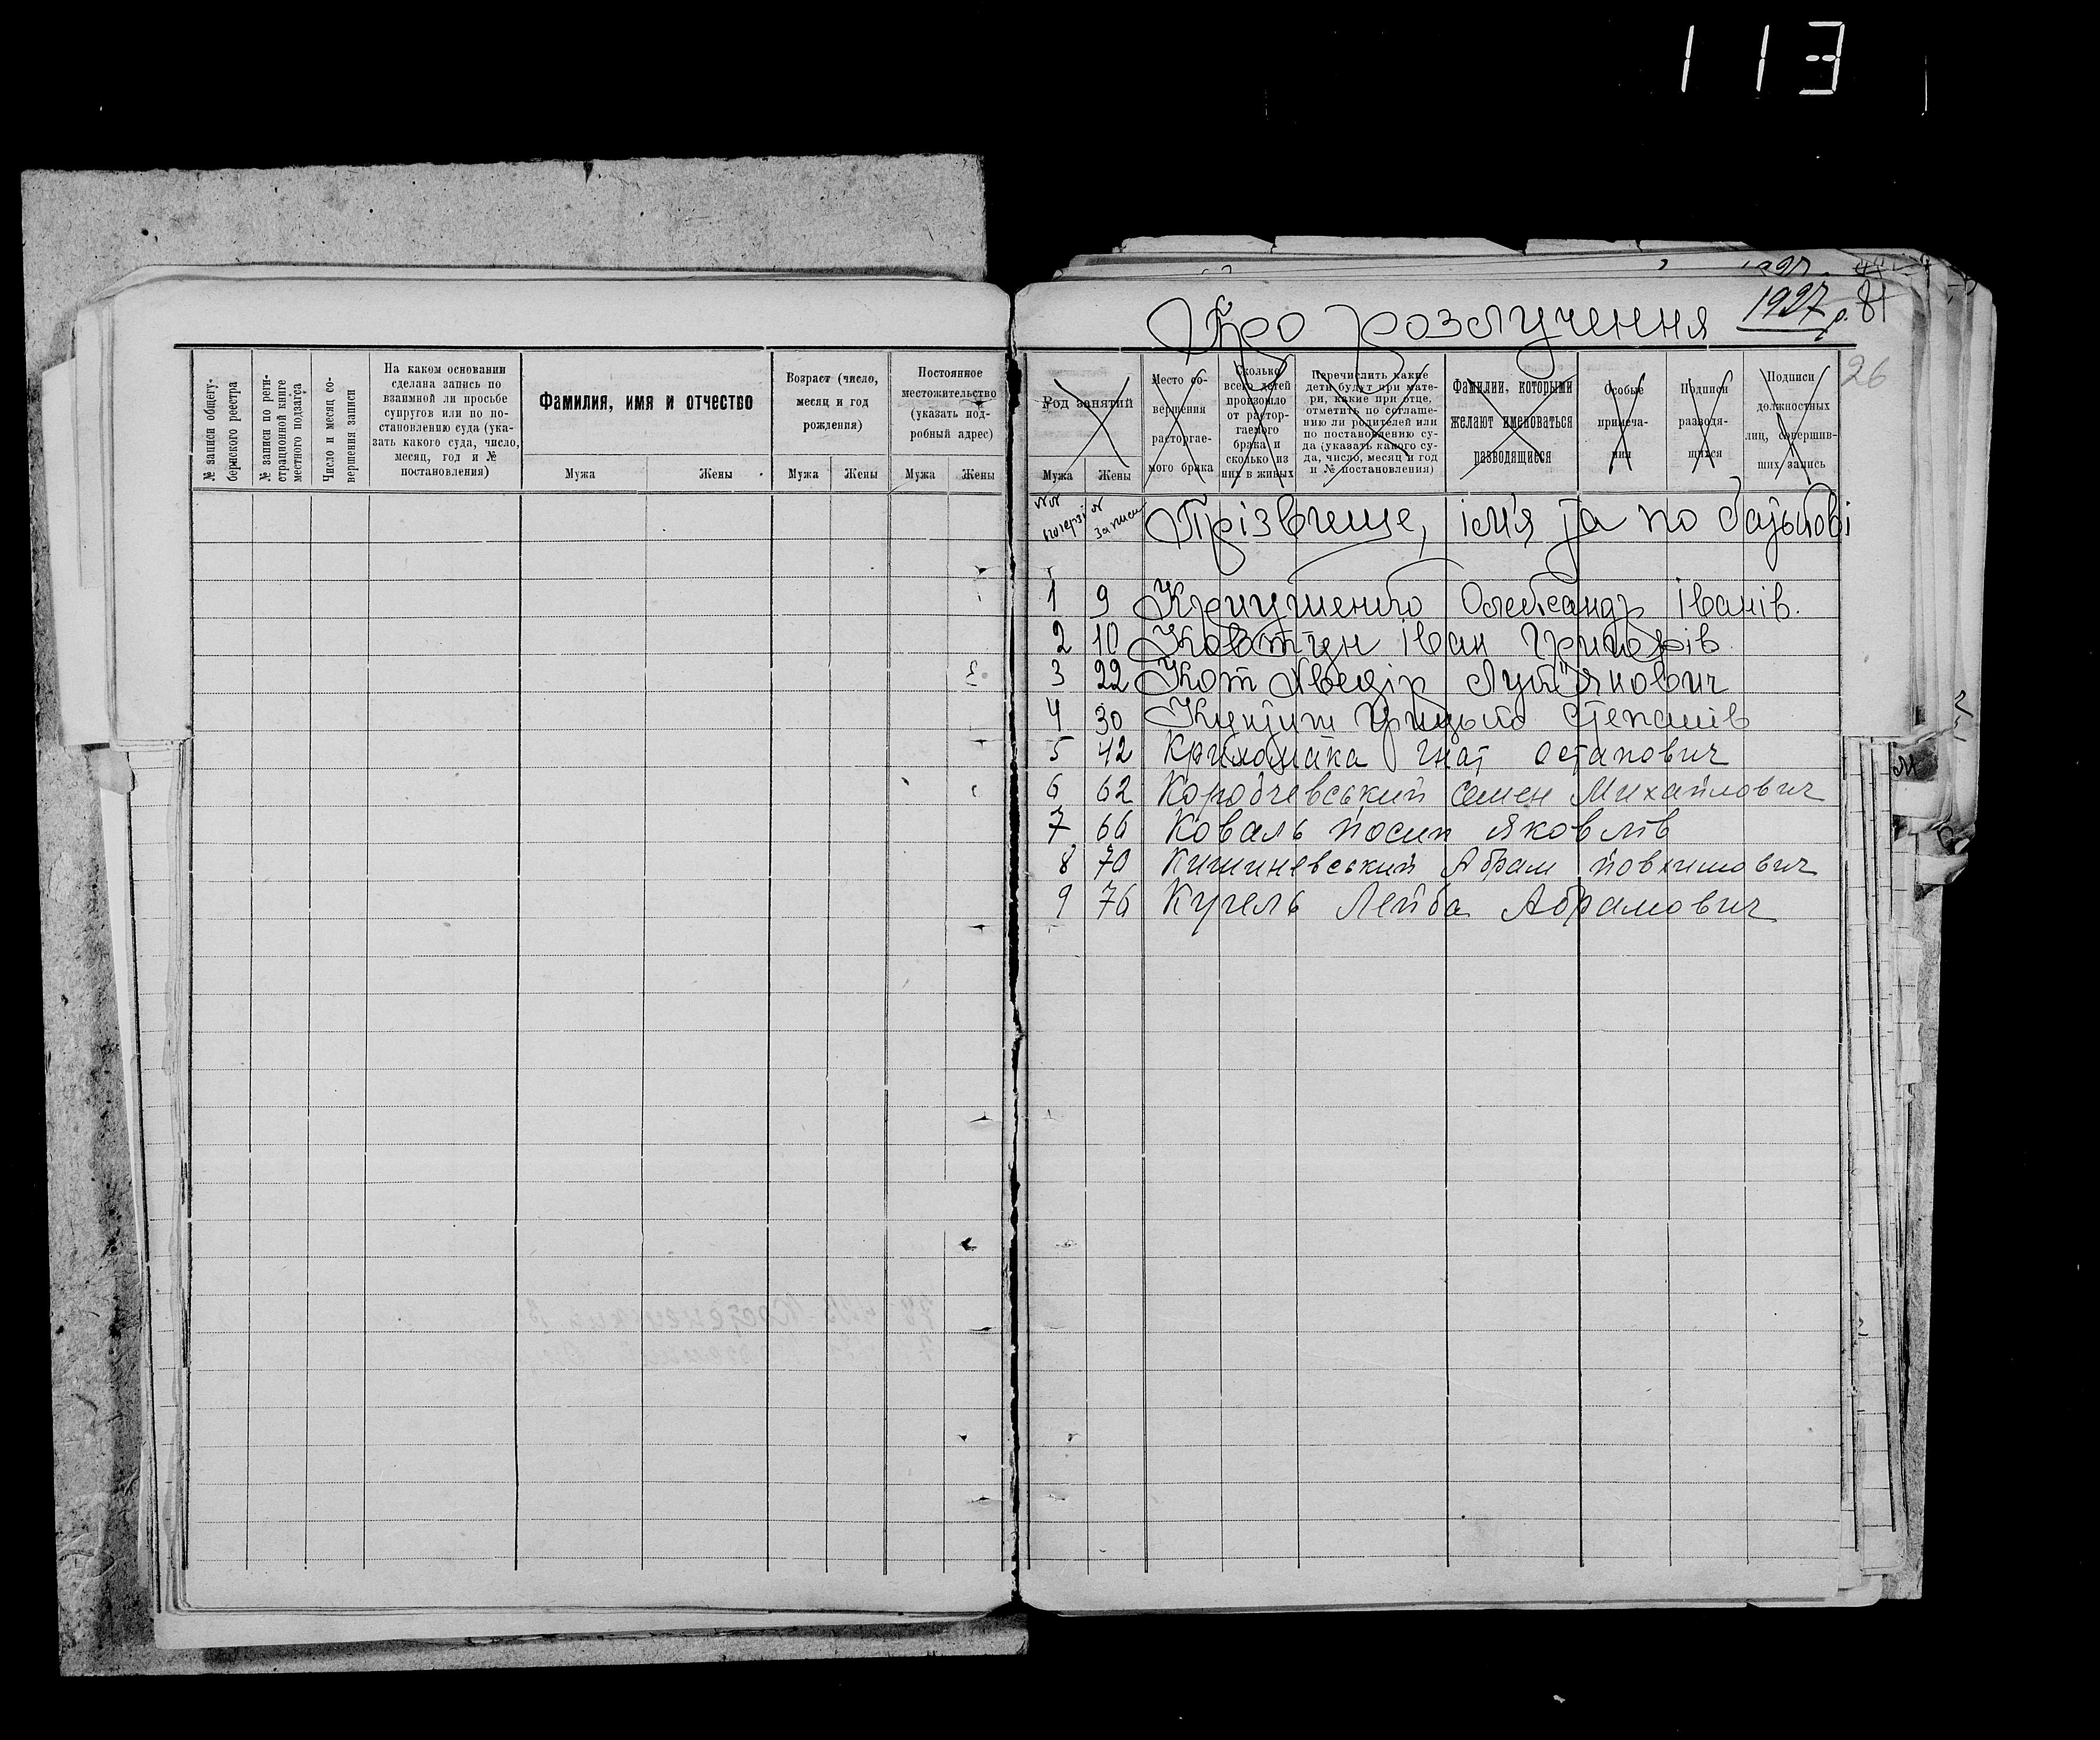 113
Про розлучення 1927 р. 81
26
№ записи общегу-
бернского реестра
№ записи по реги-
страционной книге
местного подзагса
Число и месяц со-
вершения записи
На каком основании
сделана запись по
взаимной ли просьбе
супругов или по по-
становлению суда (ука-
зать какого суда, число,
месяц, год и №
постановления)
Фамилия, имя и отчество
Мужа Жены
Возраст (число,
месяц и год
рождения)
Мужа Жены
Постоянное
местожительство
(указать под-
робный адрес)
Мужа Жены
Род занятий
Мужа Жены
Место со-
вершения
расторгае-
мого брака
Сколько
всего детей
произошло
от растор-
гаемого
брака и
сколько из
них в живых
Перечислить какие
дети будут при мате-
ри, какие при отце,
отметить по соглаше-
нию ли родителей или
по постановлению су-
да (указать какого су-
да, число, месяц и год
и № постановления)
Фамилии, которыми
желают именоваться
разводящиеся
Особые
примеча-
ния
Подписи
разводя-
щихся
Подписи
должностных
лиц, совершив-
ших запись
№ записи Прізвище, ім'я та по батькові
1 9 Олександр Іванів.
2 10 Ковтун Іван Григорів
3 22 Кот
4 30 Грицько Степанів
5 42 Гнат Остапович
6 62 Коробчевський Семен Михайлович
7 66 Коваль Йосип Яковлів
8 70 Кишиневський Абрам
9 76 Кугель Лейба Абрамович